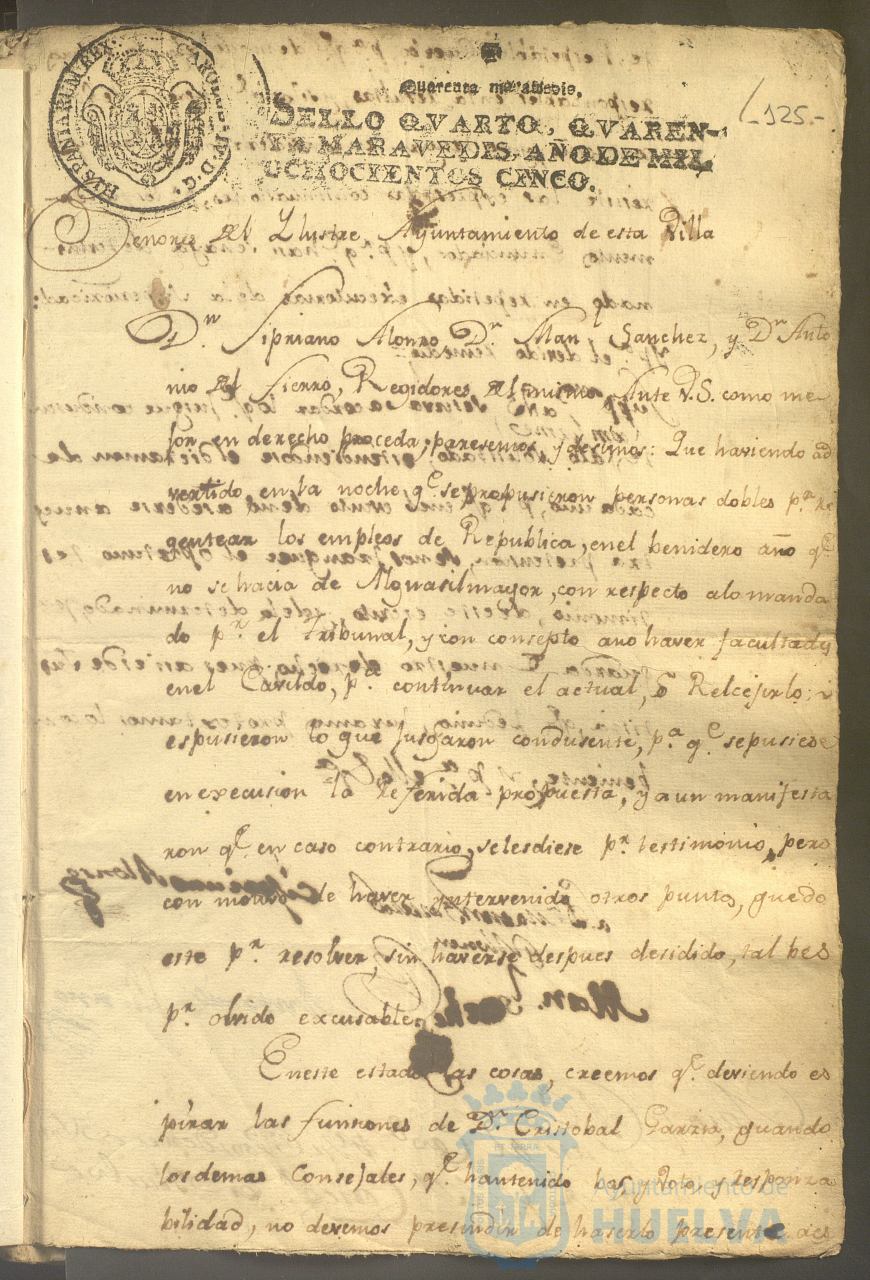 HISPANIARUM REX. CAROLUS IV D.G.
Quarenta maravedis.
SELLO QVARTO, QVAREN-
TA MARAVEDIS, AÑO DE MIL
OCHOCIENTOS CINCO.
125.-
Señores del Ylustre Ayuntamiento de esta Villa
Dn. Sipriano Alonzo, Dn. Man.l Sanchez, y Dn. Anto
nio del Fierro, Regidores del mismo Ante V.S. como me-
jor en derecho proceda, paresemos y desimos: Que haviendo ad
vertido, en la noche q.e se propusieron personas dobles p.a re
gentear los empleos de Republica, en el benidero año q.e
no se hacia de Alguasil mayor, con respecto a lo manda
do p.r el Tribunal, y con consepto a no haver facultades
en el Cavildo, p.a continuar el actual, o Relcejirlo;
espusieron lo que jusgaron condusente, p.a q.e se pusiese
en execusion la referida propuesta, y aun manifesta
ron q.e en caso contrario, se les diese p.r testimonio, pero
con motivo de haver yntervenido otros puntos, quedo
este p.r resolver, sin haverse despues desidido, tal bes
p.r olvido excusable.
En este estado las cosas, creemos q.e deviendo es
pirar las funsiones de Dn. Cristobal Garzia, quando
los demas Consejales, q.e han tenido bos, y Voto, y responza
bilidad, no devemos presindir de haserlo presente a es
Cipriano Alonso
Man.
Ayuntamiento de
HUELVA